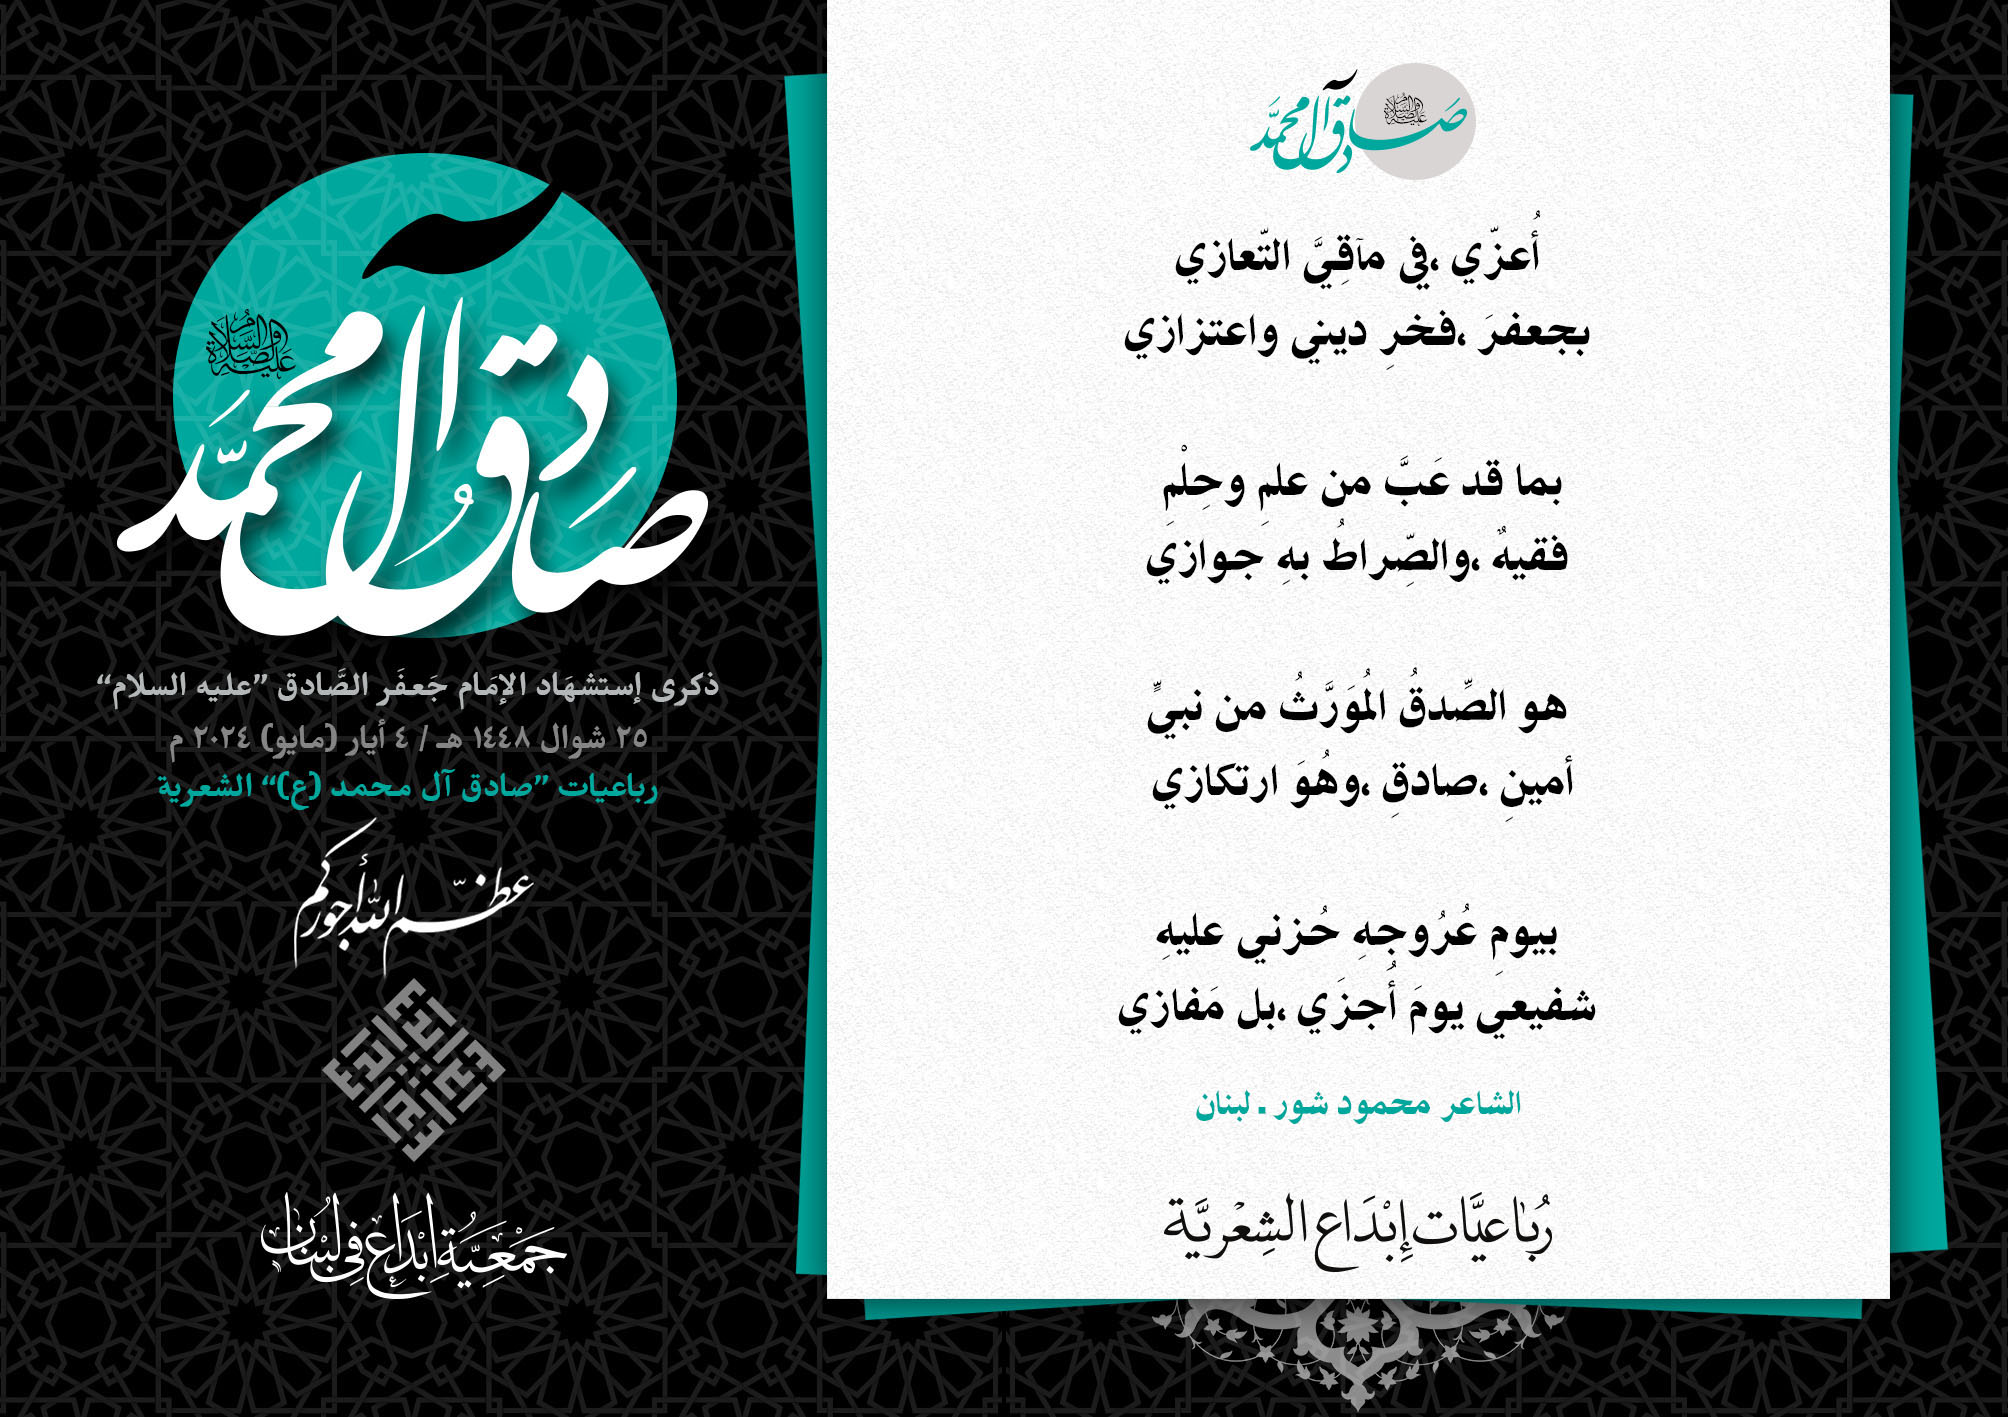 صادق آل محمد
عليه الصلاة والسلام
ذكرى إستشهَاد الإمَام جَعفَر الصَّادق ”عليه السلام“
٢٥ شوال ١٤٤٨ هـ / ٤ أيار (مايو) ٢٠٢٤ م
رباعيات ”صادق آل محمد (ع)“ الشعرية
عظّم الله أجوركم
إبداع
جَمْعِيَّةُ إِبْدَاع فِي لُبْنَان
صادق آل محمد
عليه الصلاة والسلام
أُعزّي ،في مآقِيَّ التّعازي
بجعفرَ ،فخرِ ديني واعتزازي
بما قد عَبَّ من علمِ وحِلْمِ
فقيهٌ ،والصِّراطُ بهِ جوازي
هو الصِّدقُ المُوَرَّثُ من نبيٍّ
أمينِ ،صادقِ ،وهُوَ ارتكازي
بيومِ عُرُوجِهِ حُزني عليهِ
شفيعي يومَ أُجزَي ،بل مَفازي
الشاعر محمود شور ـ لبنان
رُبَاعيَّات إِبْدَاع الشِعْريَّة